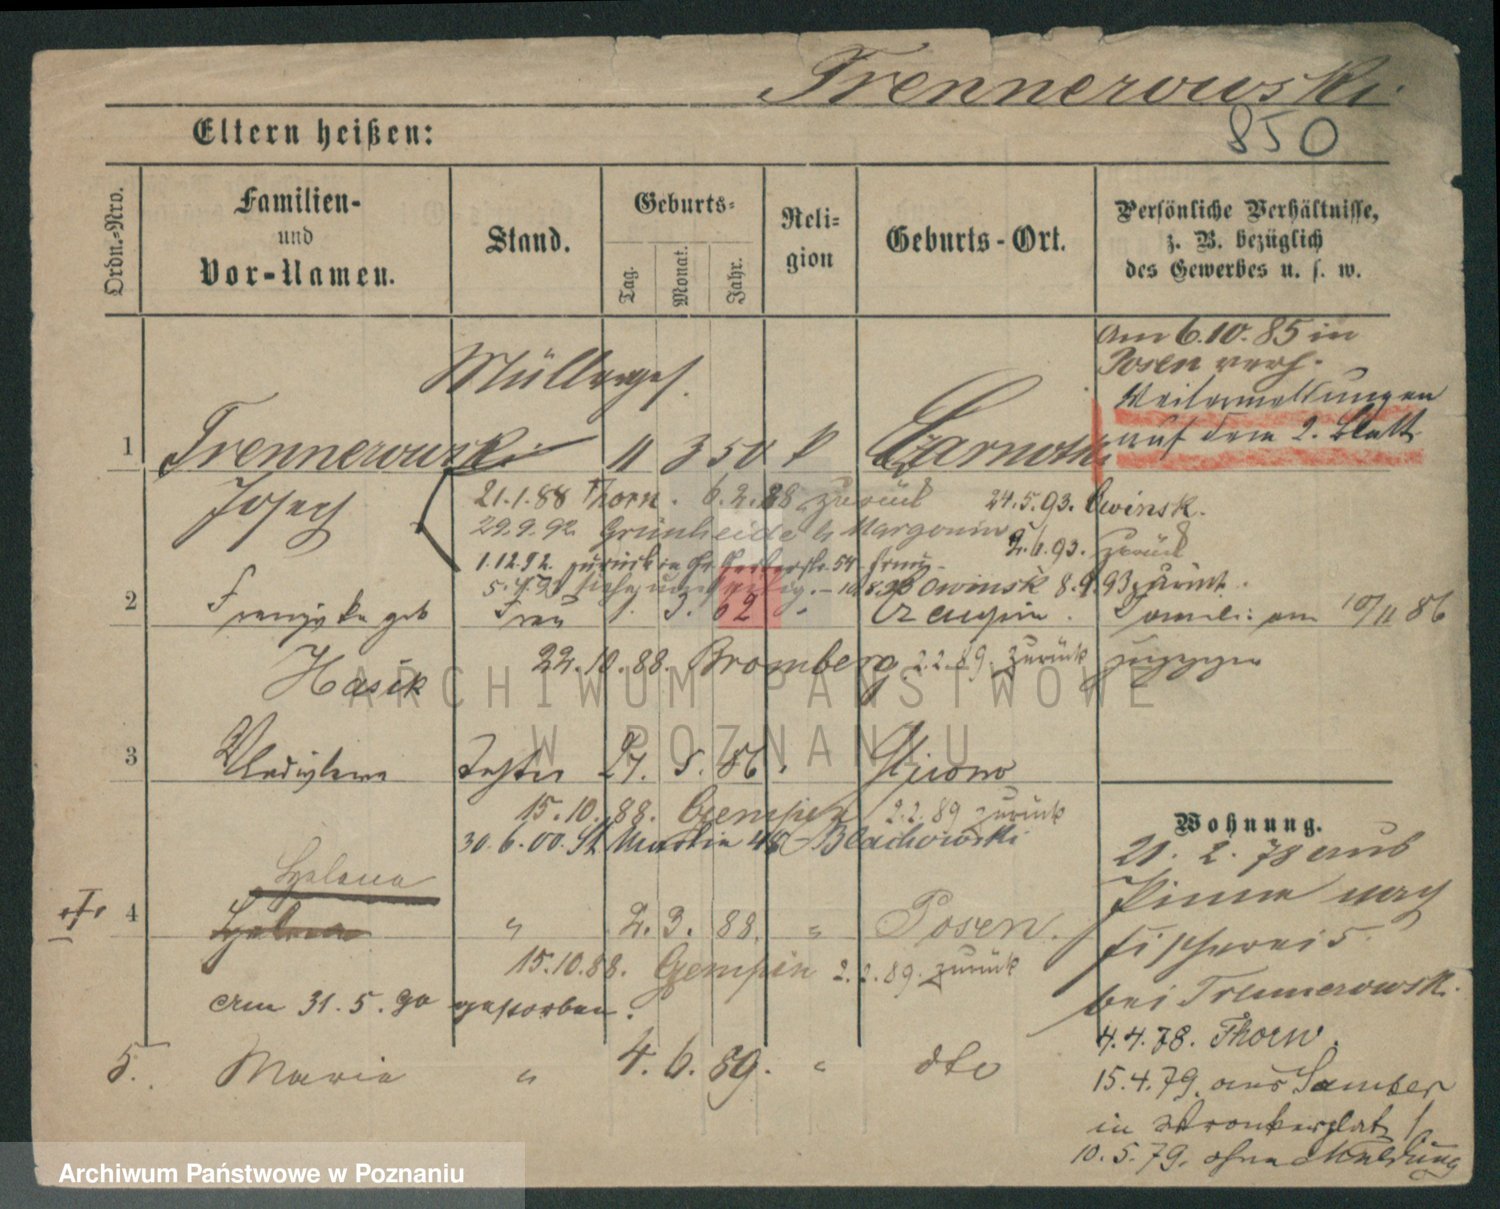 Trennerowski
850
Eltern heißen:
Ordn.-Nro.
Familien-
und
Vor-Namen.
Stand.
Geburts-
Tag.
Monat.
Jahr.
Reli-
gion
Geburts-Ort.
Persönliche Verhältnisse,
z. B. bezüglich
des Gewerbes u. s. w.
Am 6.10.85 in
Posen verh.
Weitermeldungen
auf dem 2. Blatt
Müllerges.
1 Trennerowski 11 3 50 k Czarnotki
Josef
21.1.88 Thorn. 6.2.88 zurück 24.5.93. Owinsk.
29.9.92. Grünheide b Margonin
2.6.93. zurück
1.12.92. zurück
Owinsk 8.9.93 zurück.
2 Franziska geb Frau 1. 3. 62 "
Familie am 10/11 86
zugezogen
Hasik
22.10.88. Bromberg 2.2.89. zurück
3 Wladislawa Tochter 27. 5. 86
15.10.88. Gempin 2.2.89 zurück
30.6.00. St Martin 48 Blachowski
Wohnung.
21. 2. 78 aus
Pinne nach
Fischerei 5
bei Trennerowski.
4.4.78. Thorn.
15.4.79. aus Samter
in
10.5.79. ohne Meldung
Helena
4 Helena " 2. 3. 88. " Posen.
15.10.88. Gempin 2.2.89. zurück
Am 31.5.90 gestorben.
5. Maria " 4. 6. 89. " dto
ARCHIWUM PAŃSTWOWE
W POZNANIU
Archiwum Państwowe w Poznaniu